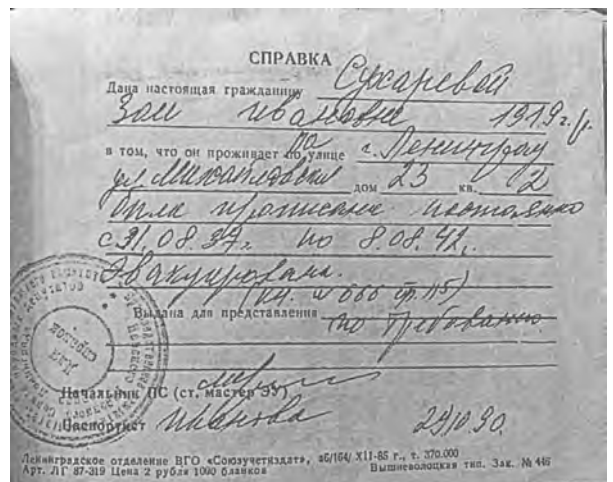 СПРАВКА
Дана настоящая гражданину Сухаревой
Зои Ивановне 1919 г.р.
в том, что он проживает по улице г. Ленинград
ул. Михайловская дом 23 кв. 2
была прописана постоянно
с 31.08.37г. по 8.08.42г.
Эвакуирована.
(кн. № 066 ф. 115)
Выдана для представления по требованию
Для
справок
Начальник ПС (ст. мастер ЭУ)
Паспортист Иванова 29.10.90.
Ленинградское отделение ВГО «Союзучетиздат», з6/164/ XII-85 г., т. 370.000
Арт. ЛГ 87-319 Цена 2 рубля 1000 бланков Вышневолоцкая тип. Зак. № 446